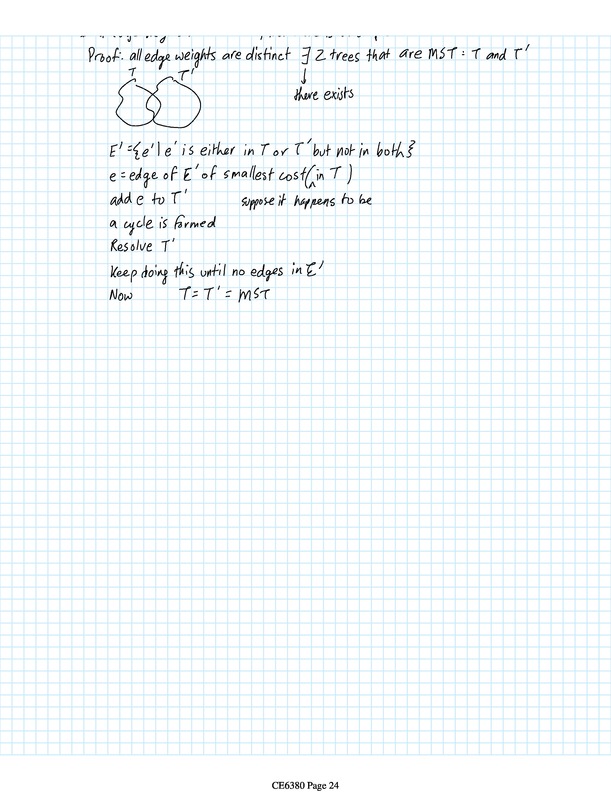 Proof: all edge weights are distinct ∃ 2 trees that are MST: T and T'
T T'
there exists
E' = {e' | e' is either in T or T' but not in both}
e = edge of E' of smallest cost (in T)
add e to T' suppose it happens to be
a cycle is formed
Resolve T'
Keep doing this until no edges in E'
Now T = T' = MST
CE6380 Page 24